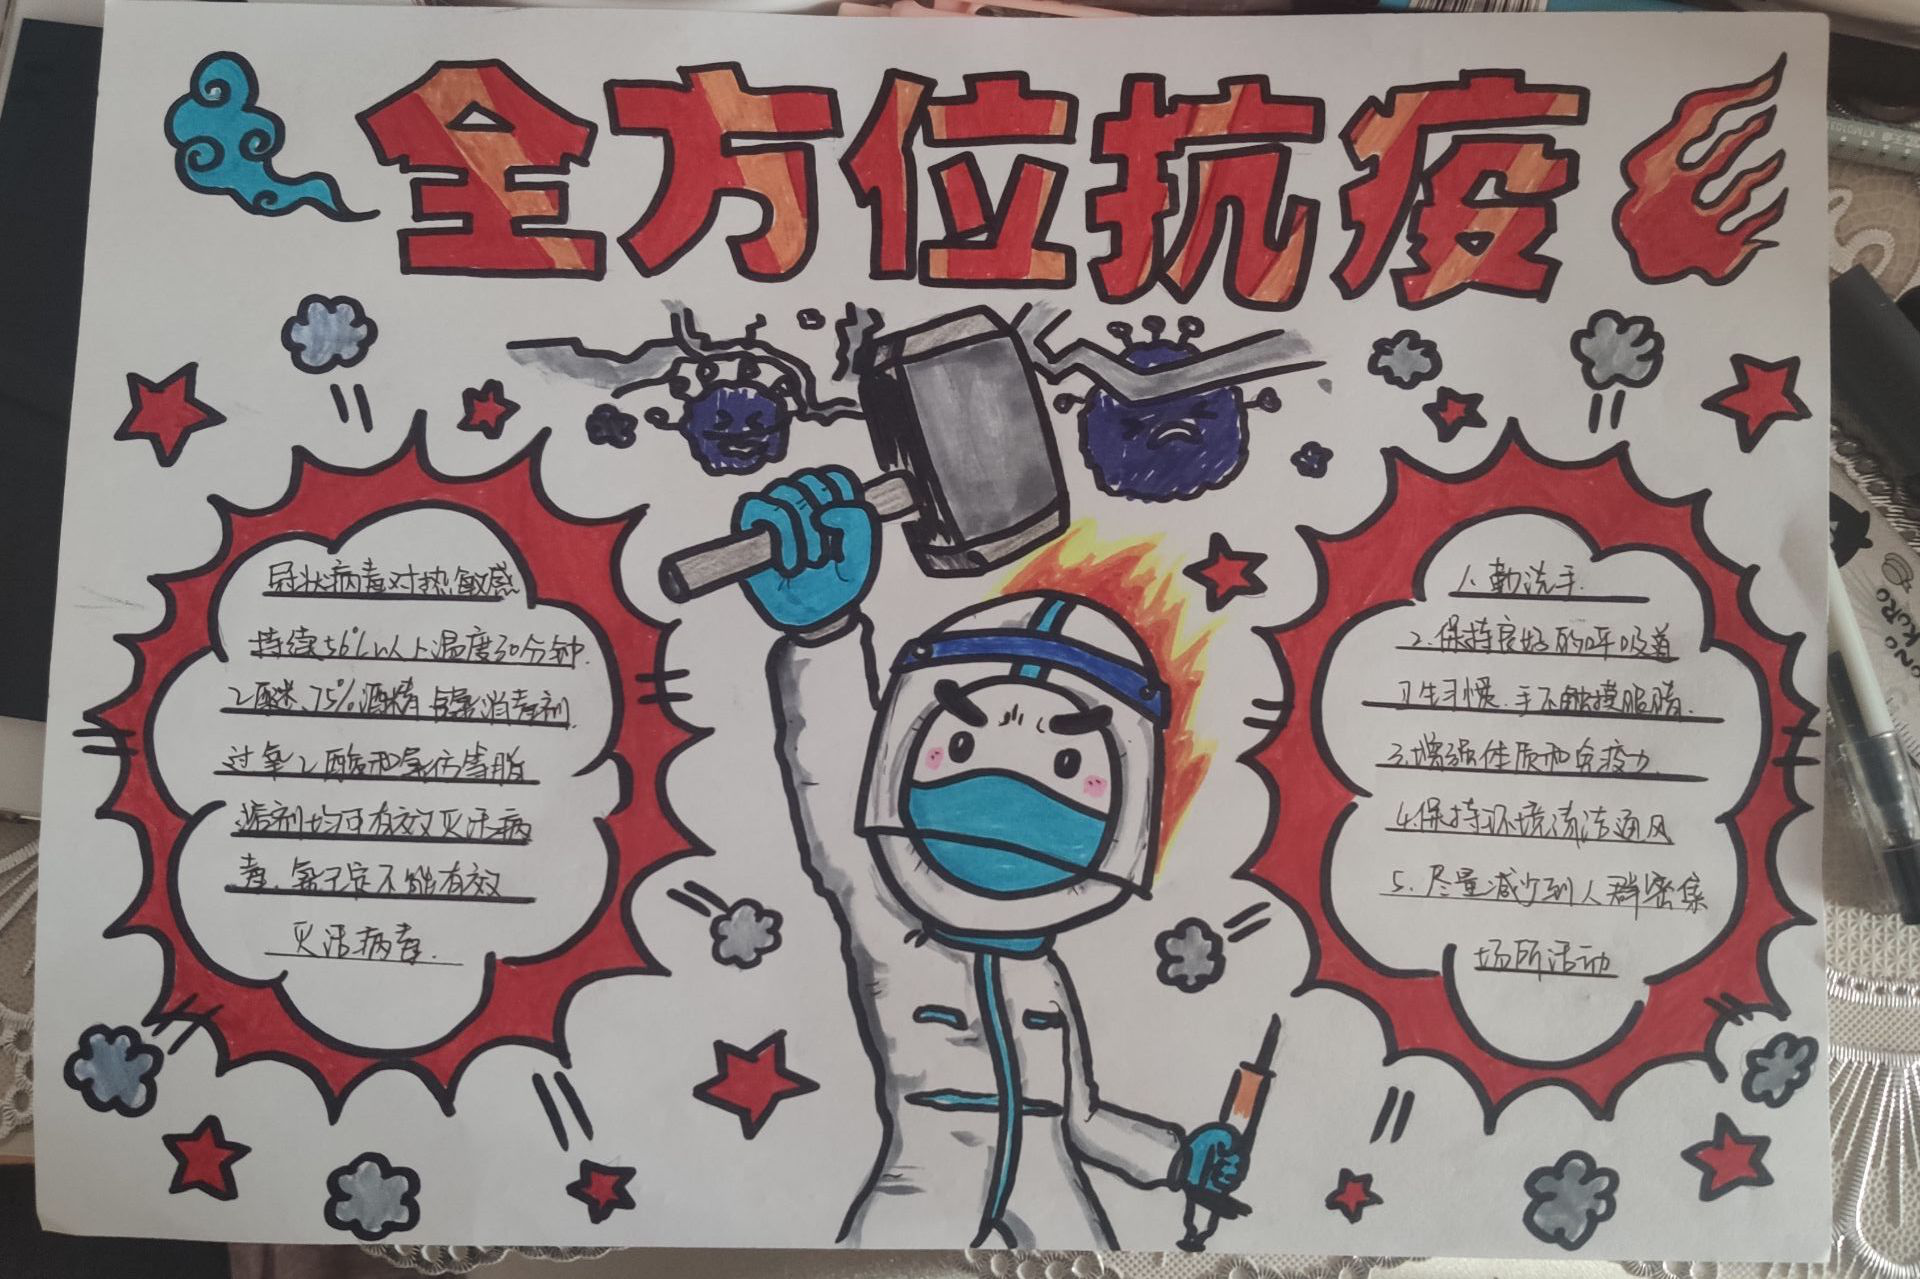 全方位抗疫
冠状病毒对热敏感
持续56℃以上温度30分钟.
乙醚、75%酒精 含氯消毒剂
过氧乙酸和氯仿等脂
溶剂均可有效灭活病
毒.氯己定不能有效
灭活病毒.
1.勤洗手.
2.保持良好的呼吸道
卫生习惯.手不触摸眼睛.
3.增强体质和免疫力
4.保持环境清洁通风
5.尽量减少到人群密集
场所活动